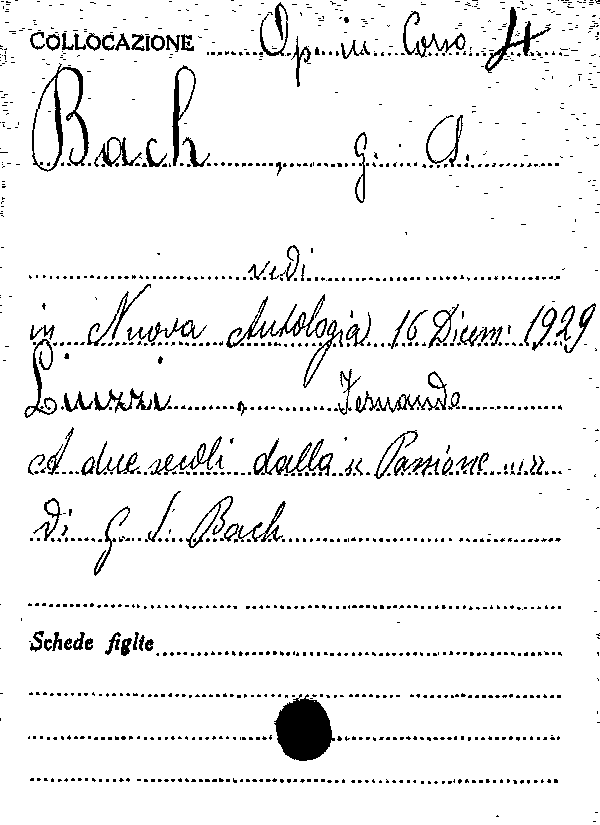 COLLOCAZIONE Op. in Corso 4
Bach, G. S.
vedi
in Nuova Antologia 16 Dicem. 1929
Liuzzi, Fernando
A due secoli dalla « Passione ...»
di G. S. Bach
Schede figlie